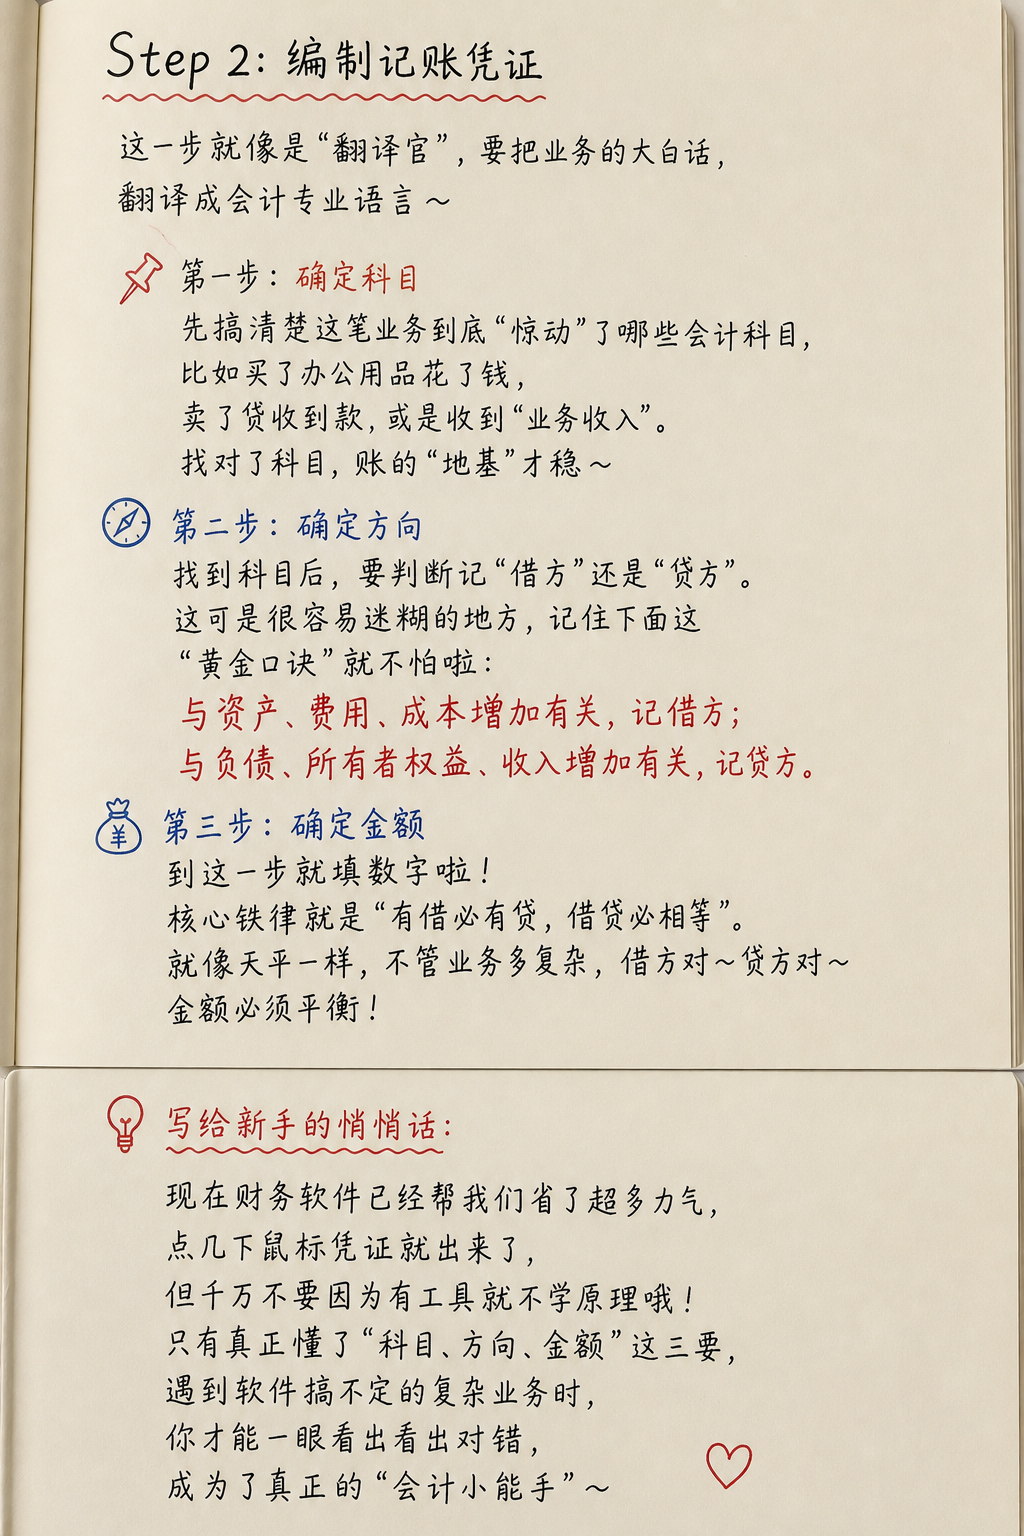 Step 2: 编制记账凭证
这一步就像是“翻译官”，要把业务的大白话，
翻译成会计专业语言～
第一步：确定科目
先搞清楚这笔业务到底“惊动”了哪些会计科目，
比如买了办公用品花了钱，
卖了贷收到款，或是收到“业务收入”。
找对了科目，账的“地基”才稳～
第二步：确定方向
找到科目后，要判断记“借方”还是“贷方”。
这可是很容易迷糊的地方，记住下面这
“黄金口诀”就不怕啦：
与资产、费用、成本增加有关，记借方；
与负债、所有者权益、收入增加有关，记贷方。
¥
第三步：确定金额
到这一步就填数字啦！
核心铁律就是“有借必有贷，借贷必相等”。
就像天平一样，不管业务多复杂，借方对～贷方对～
金额必须平衡！
写给新手的悄悄话：
现在财务软件已经帮我们省了超多力气，
点几下鼠标凭证就出来了，
但千万不要因为有工具就不学原理哦！
只有真正懂了“科目、方向、金额”这三要，
遇到软件搞不定的复杂业务时，
你才能一眼看出看出对错，
成为了真正的“会计小能手”～